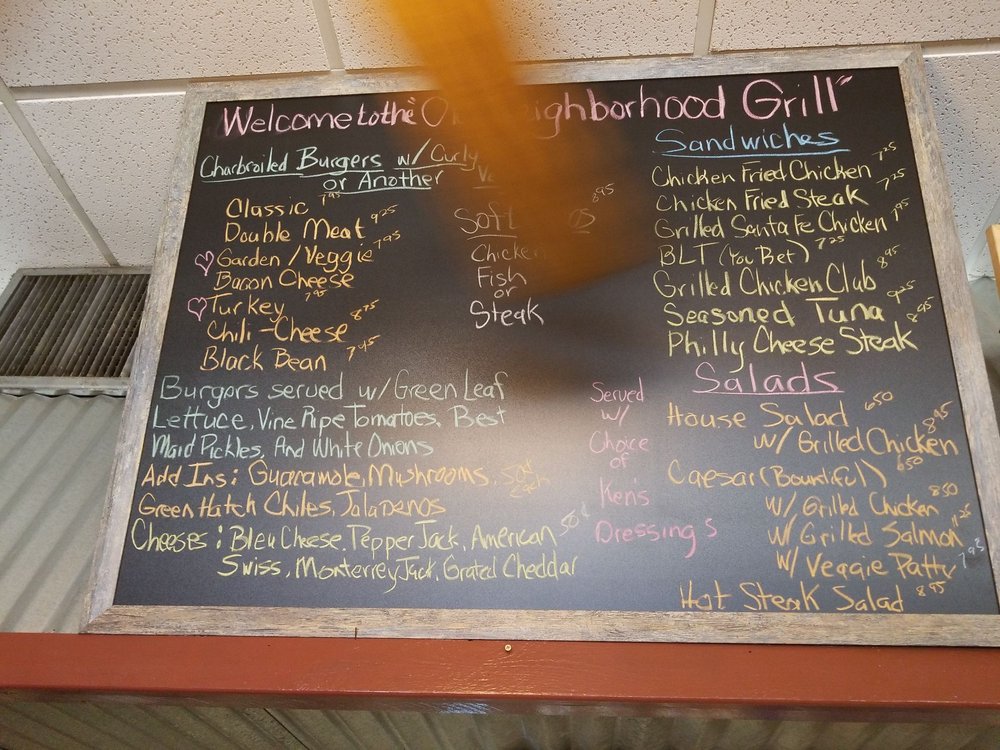 Welcome to the " ighborhood Grill"
Charbroiled Burgers w/ Curly
or Another
Classic 7.95
Double Meat 9.25
Garden / Veggie 7.95
Bacon Cheese
Turkey 7.95
Chili-Cheese 8.75
Black Bean 7.45
Burgers served w/ Green Leaf
Lettuce, Vine Ripe Tomatoes, Best
Maid Pickles, And White Onions
Add Ins: Guacamole, Mushrooms, 50¢ Each
Green Hatch Chiles, Jalapenos
Cheeses: Bleu Cheese, Pepper Jack, American 50¢
Swiss, Monterrey Jack, Grated Cheddar
Soft 8.95
Chicken
Fish
or
Steak
Served
w/
Choice
of
Ken's
Dressings
Sandwiches
Chicken Fried Chicken 7.25
Chicken Fried Steak 7.25
Grilled Santa Fe Chicken 7.95
BLT (You Bet) 7.25
Grilled Chicken Club 8.95
Seasoned Tuna 9.25
Philly Cheese Steak 8.95
Salads
House Salad 6.50
w/ Grilled Chicken 8.95
Caesar (Bountiful) 6.50
w/ Grilled Chicken 8.50
w/ Grilled Salmon 11.25
w/ Veggie Patty 7.95
Hot Steak Salad 8.95